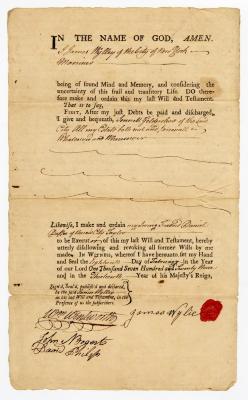 IN THE NAME OF GOD, AMEN.
I James Wylley of the City of New York
Mariner
being of sound Mind and Memory, and considering the
uncertainty of this frail and transitory Life. DO there-
fore make and ordain this my last Will and Testament.
That is to say,
FIRST, After my just Debts be paid and discharged,
I give and bequeath,
City All my Estate both real and personal
Whatsoever and Wheresoever
Likewise, I make and ordain my loving Friend Daniel
of the said City Taylor
to be Executor of this my last Will and Testament, hereby
utterly disallowing and revoking all former Wills by me
made. IN WITNESS, whereof I have hereunto set my Hand
and Seal the Day of February in the Year
of our Lord One Thousand Seven Hundred and Seventy three
and in the Thirteenth Year of his Majesty's Reign,
Sign'd, Seal'd, publish'd and delivered,
by the said James Wylley
as his last Will and Testament, in the
Presence of us the subscribers.
James Wylie
John Bogert
David Phelps